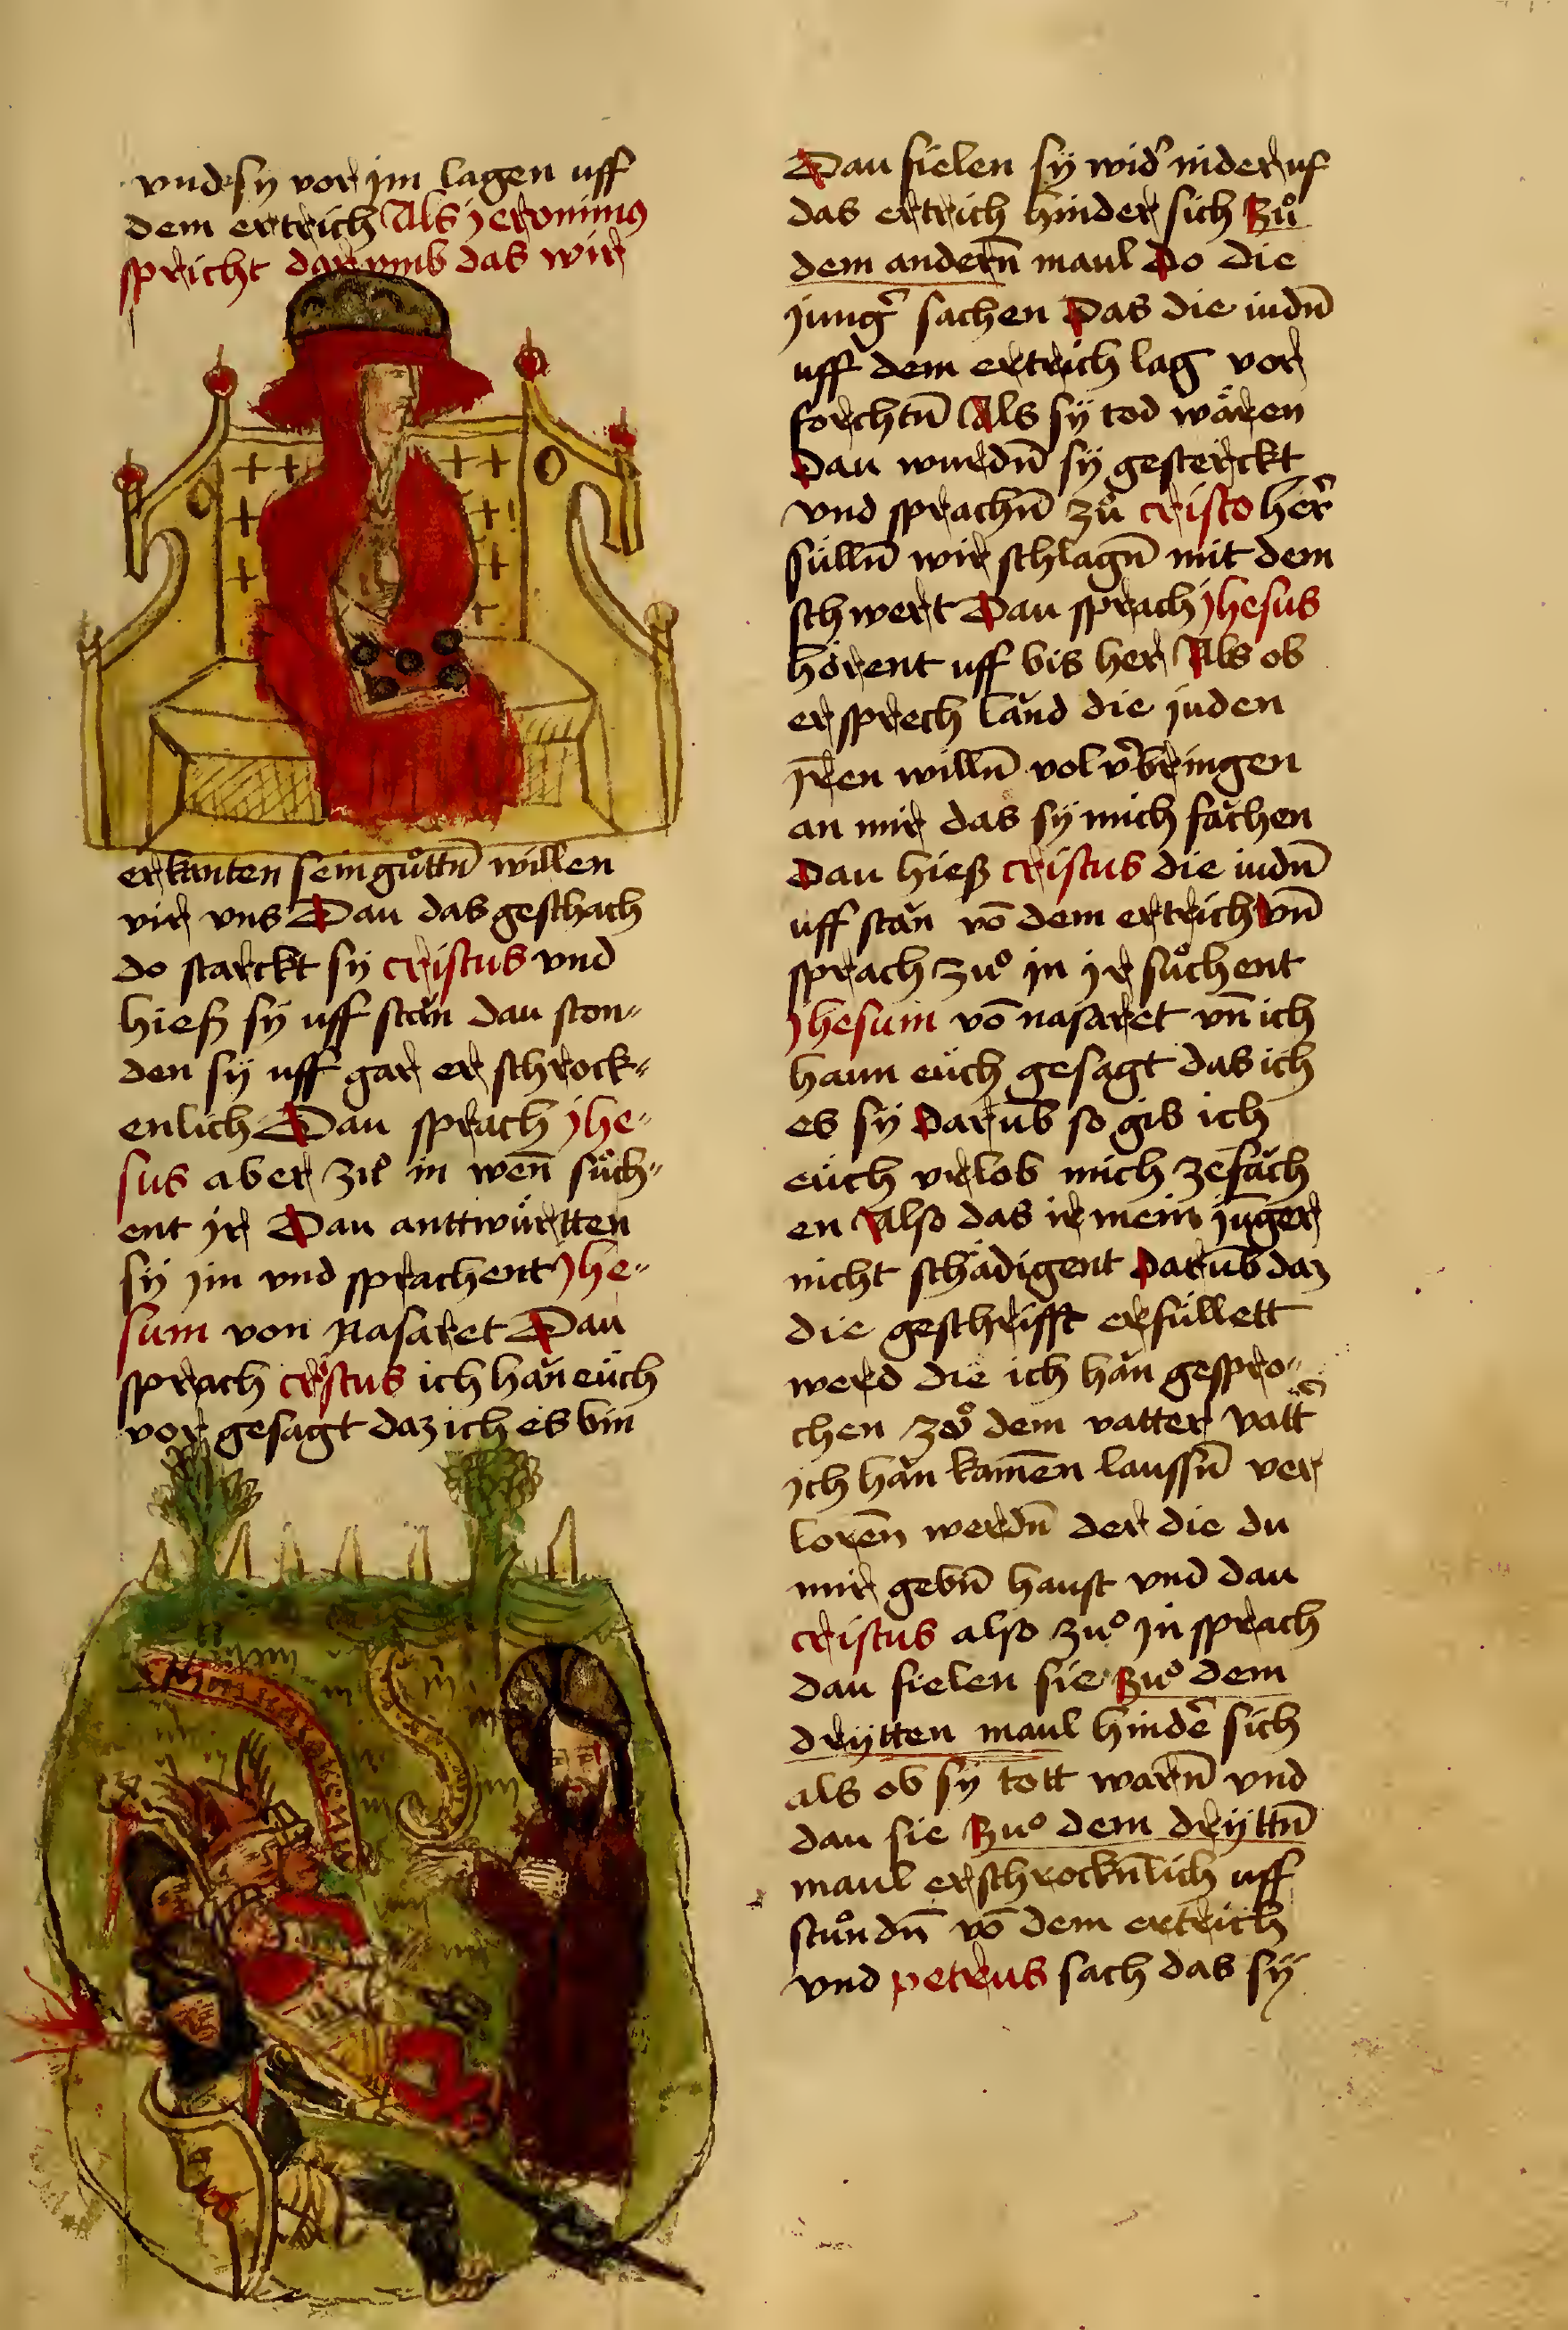 vnd sy vor jm lagen uff
dem ertrich Als jeronimus
spricht dar vmb das wir
erkanten sein guͦttn̄ willen
vir vns Dau das geschach
do starckt sy cristus vnd
hiesz sÿ uff stăn dau ston„
den sÿ uff gar er schrock„
enlich Dau sprach jhe„
sus aber zuͦ in wen̄ suͦch„
ent jr Dau anttwürtten
sÿ jm vnd sprachent Jhe„
sum von Nasaret Dau
sprach cristus ich hăn eüch
vor gesagt daz ich es bin
Dau fielen sÿ wid' nider uf
das ertrich hinder sich Zuͦ
dem andern̄ maul Do die
jung' sachen Das die iudn̄
uff dem ertrich lag vor
forchtn̄ Als sÿ tod wären
Dau wurdn̄ sÿ gesterckt
vnd sprachn̄ zuͦ cristo her'
sülln̄ wir schlagn̄ mit dem
schwert Dau sprach jhesus
hörent uff bis her Als ob
er sprech lănd die juden
jren willn̄ vol v'bringen
an mir das sÿ mich făchen
Dau hiesz cristus die iudn̄
uff stăn vō dem ertrich vn̄
sprach zuͦ in jr suͦchent
jhesum vō nasaret vn̄ ich
haun eüch gesagt das ich
es sÿ Darūb so gib ich
eüch vrlob mich zefăch
en Also das ir mein jūger
nicht schädigent Darūb daz
die geschrifft erfüllett
werd die ich hăn gespro„
chen zoͦ dem vatter vatt'
jch hăn kamen̄ laussn̄ ver
loren̄ werdn̄ der die du
mir gebn̄ haust vnd dau
cristus also zuͦ jn sprach
dau fielen sie Zuͦ dem
drÿtten maul hinde' sich
als ob sÿ tott warn̄ vnd
dau sie Zuͦ dem drÿttn̄
maul erschrockn̄lich uff
stuͦndn̄ vō dem ertrich
vnd petrus sach das sÿ